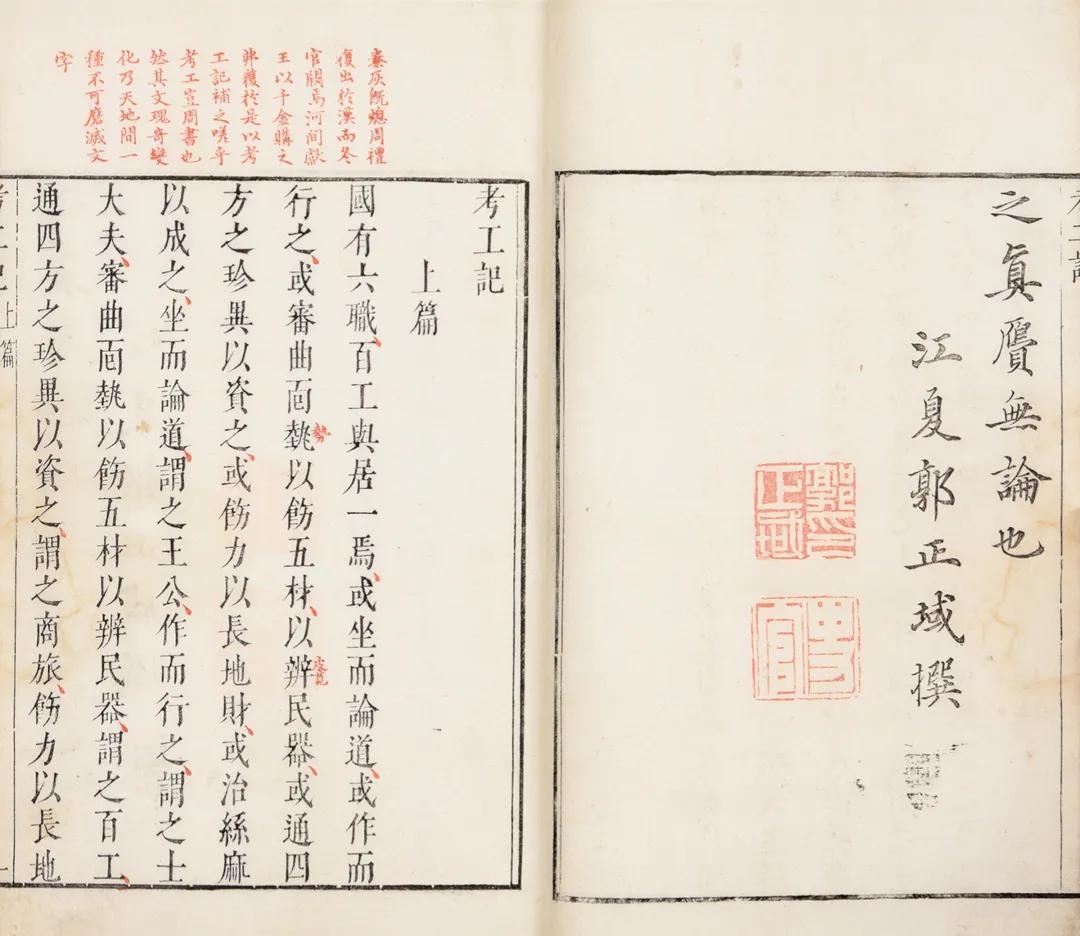 考工記
之眞贗無論也
江夏郭正域撰
郭印正域
秦灰旣熄周禮
復出於漢而冬
官闕焉河間獻
王以千金購之
弗獲於是以考
工記補之嗟乎
考工豈周書也
然其文瑰奇變
化乃天地間一
種不可磨滅文
字
考工記
上篇
國有六職、百工與居一焉、或坐而論道、或作而
行之、或審曲面埶以飭五材、以辨民器、或通四
勢
方之珍異以資之、或飭力以長地財、或治絲麻
以成之、坐而論道、謂之王公、作而行之、謂之士
大夫、審曲面埶以飭五材以辨民器、謂之百工、
通四方之珍異以資之、謂之商旅、飭力以長地
考工記 上篇